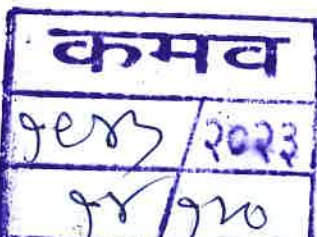 कमव
१९४३/२०२३
१४/१२०